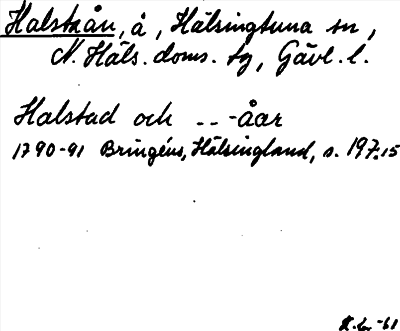 Halstaån, å, Hälsingtuna sn,
N. Häls. doms. tg, Gävl. l.
Halstad och -- -åar
1790-91 Bringéus, Hälsingland, s. 197.15